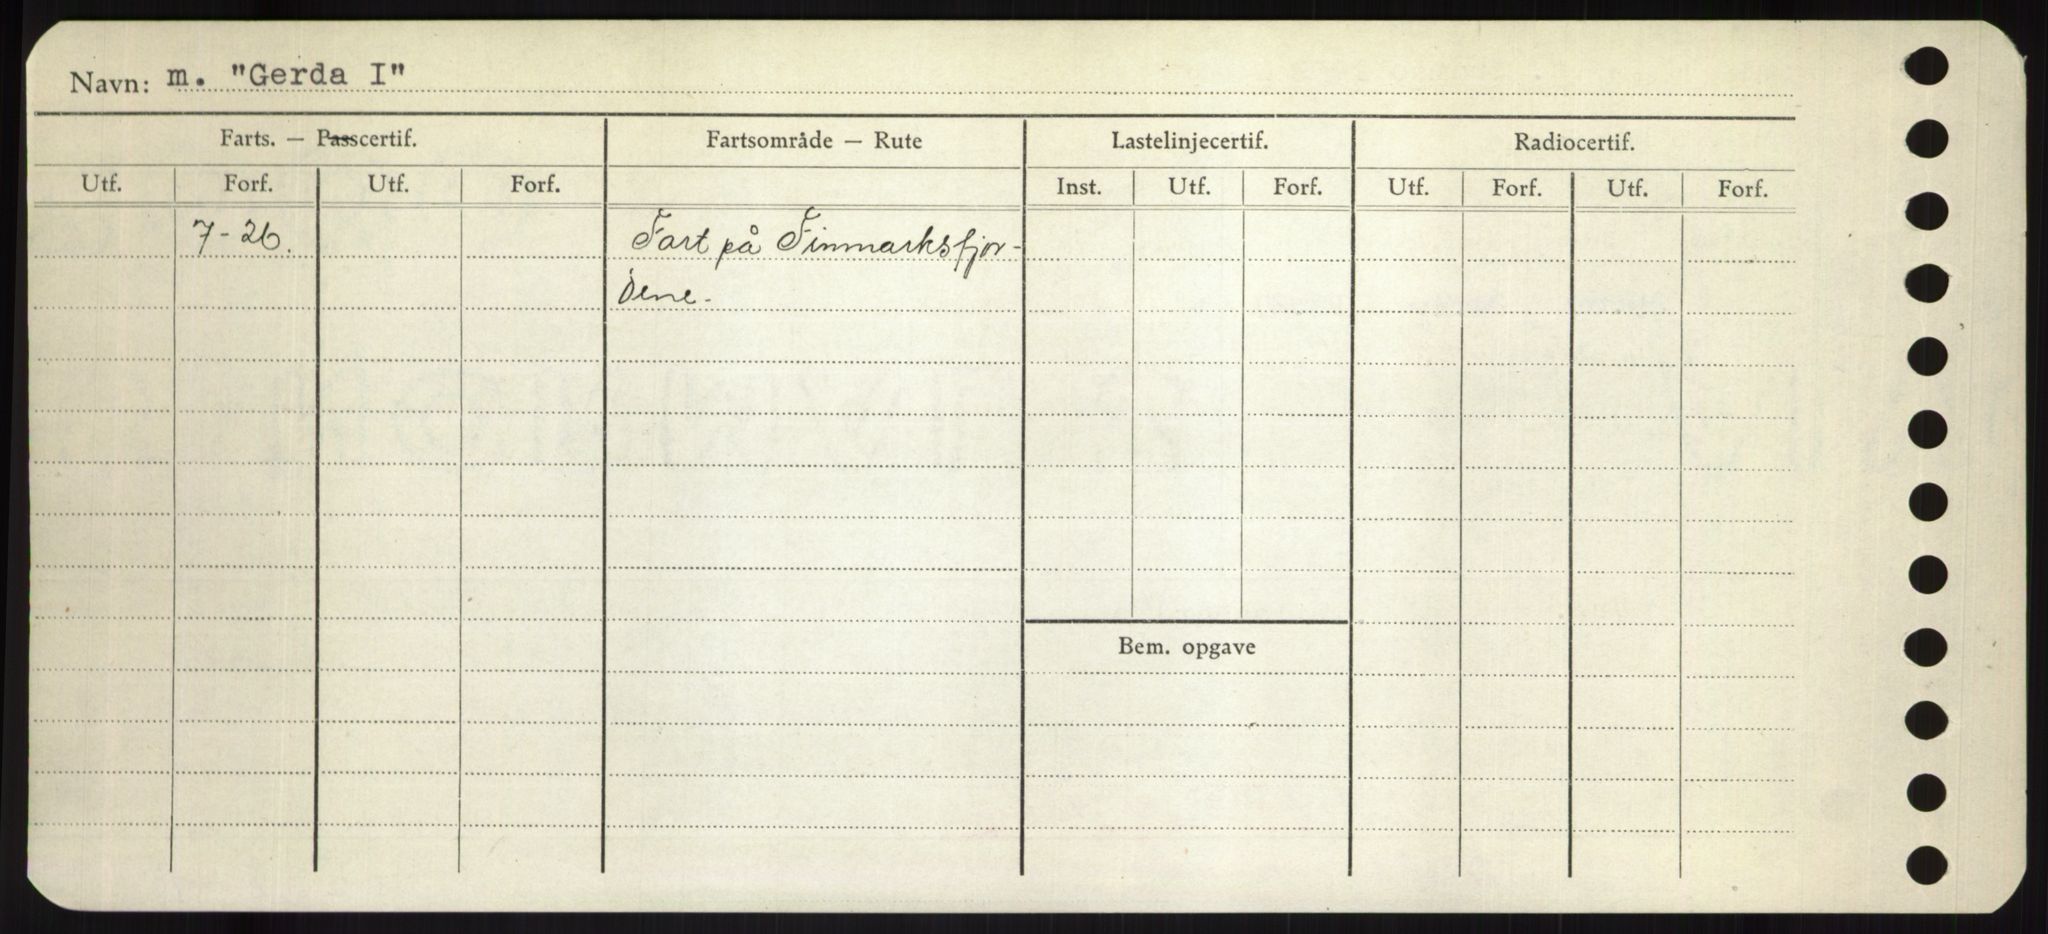 Navn: m. "Gerda I"
Farts. — Passcertif. Fartsområde — Rute Lastelinjecertif. Radiocertif.
Utf. Forf. Utf. Forf. Inst. Utf. Forf. Utf. Forf. Utf. Forf.
7-26. Fart på Finmarksfjor-
dene.
Bem. opgave